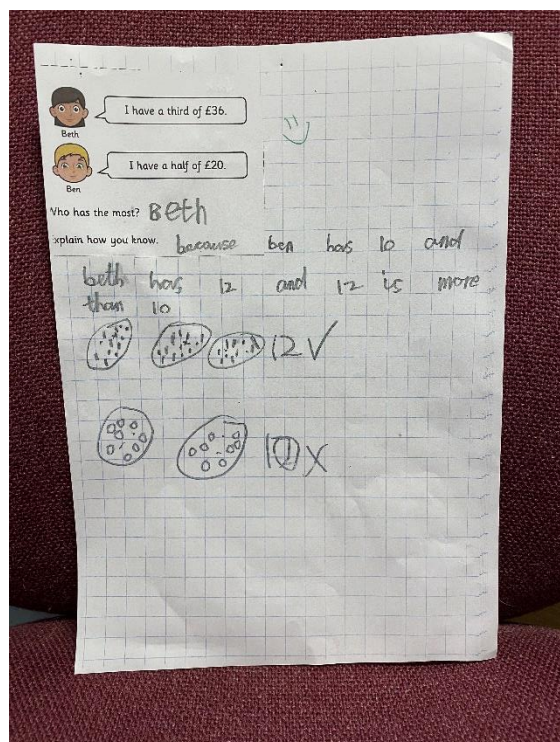 I have a third of £36.
Beth
I have a half of £20.
Ben
Who has the most? Beth
xplain how you know. because ben has 10 and
beth has 12 and 12 is more
than 10
12 ✓
10 x